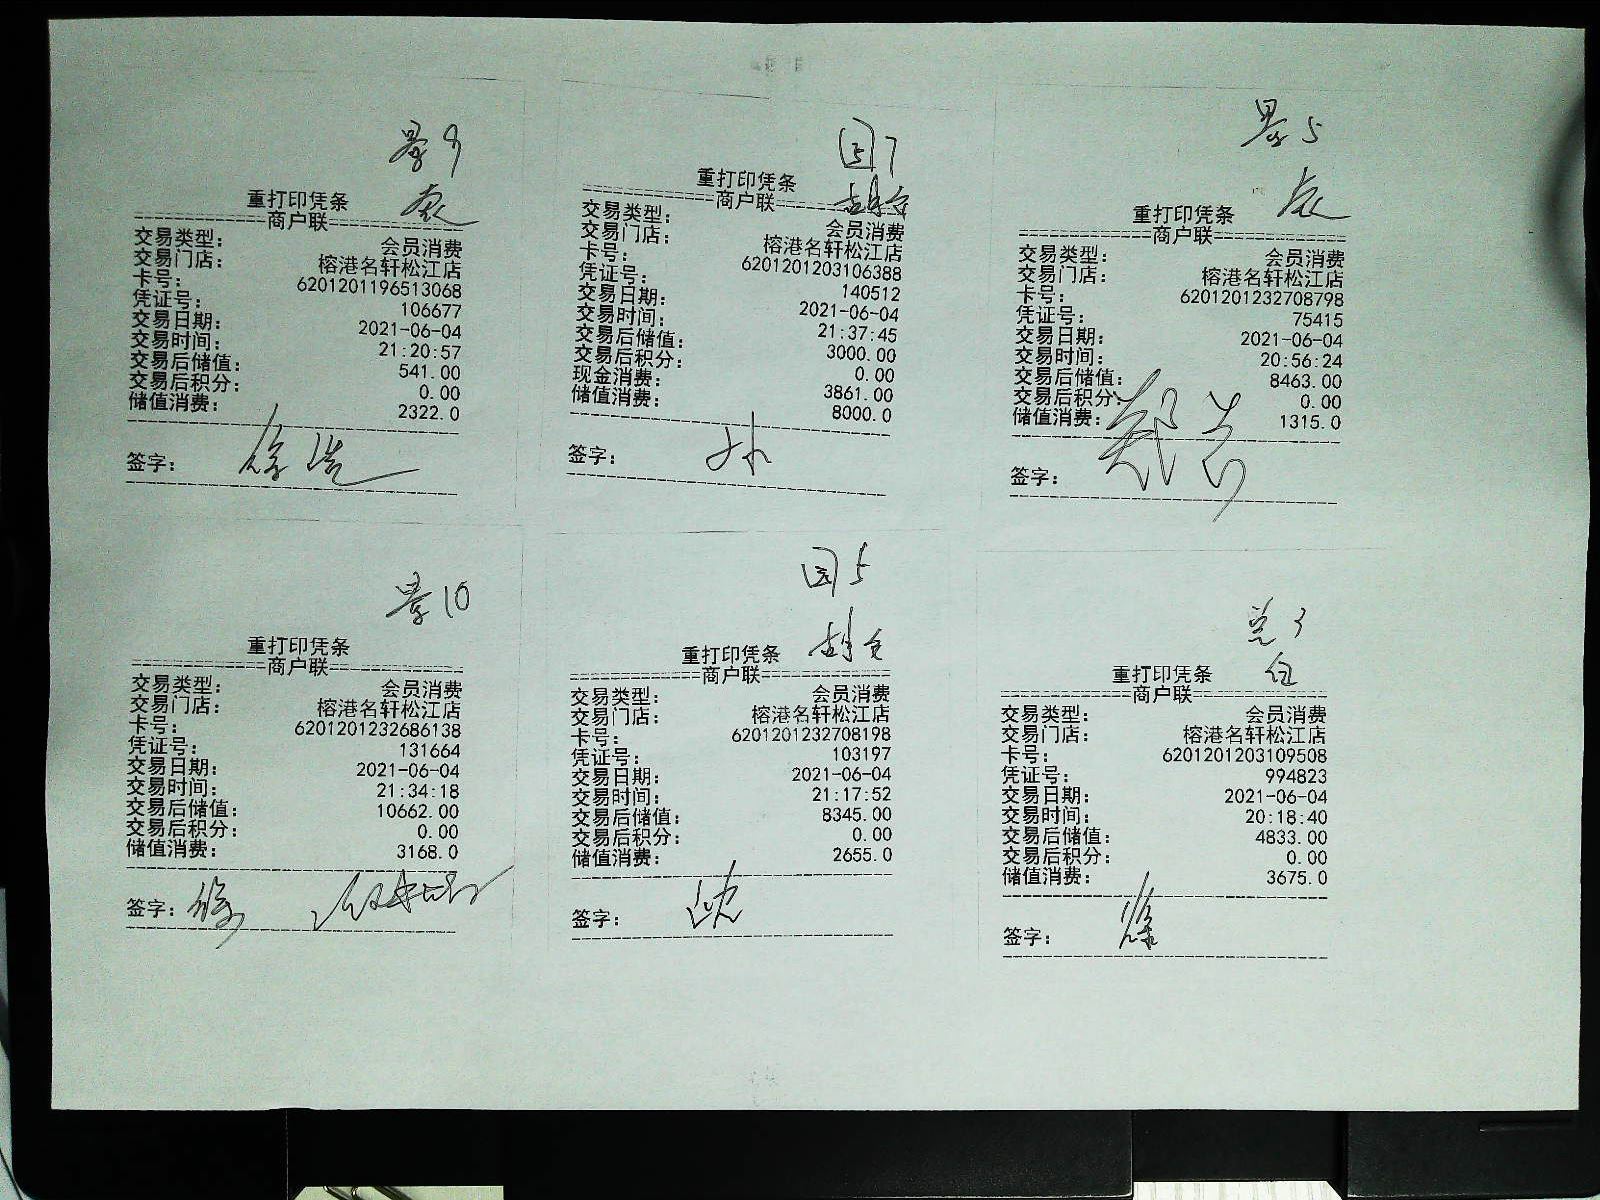 景9
重打印凭条
袁
==============商户联==============
交易类型: 会员消费
交易门店: 榕港名轩松江店
卡号: 6201201196513068
凭证号: 106677
交易日期: 2021-06-04
交易时间: 21:20:57
交易后储值: 541.00
交易后积分: 0.00
储值消费: 2322.0
签字: 徐浩
7
重打印凭条
==============商户联==============
交易类型: 会员消费
交易门店: 榕港名轩松江店
卡号: 6201201203106388
凭证号: 140512
交易日期: 2021-06-04
交易时间: 21:37:45
交易后储值: 3000.00
交易后积分: 0.00
现金消费: 3861.00
储值消费: 8000.0
签字: 孙
景5
袁
重打印凭条
==============商户联==============
交易类型: 会员消费
交易门店: 榕港名轩松江店
卡号: 6201201232708798
凭证号: 75415
交易日期: 2021-06-04
交易时间: 20:56:24
交易后储值: 8463.00
交易后积分: 0.00
储值消费: 1315.0
签字: 郑
景10
重打印凭条
==============商户联==============
交易类型: 会员消费
交易门店: 榕港名轩松江店
卡号: 6201201232686138
凭证号: 131664
交易日期: 2021-06-04
交易时间: 21:34:18
交易后储值: 10662.00
交易后积分: 0.00
储值消费: 3168.0
签字:
5
重打印凭条
==============商户联==============
交易类型: 会员消费
交易门店: 榕港名轩松江店
卡号: 6201201232708198
凭证号: 103197
交易日期: 2021-06-04
交易时间: 21:17:52
交易后储值: 8345.00
交易后积分: 0.00
储值消费: 2655.0
签字: 沈
总3
重打印凭条
==============商户联==============
交易类型: 会员消费
交易门店: 榕港名轩松江店
卡号: 6201201203109508
凭证号: 994823
交易日期: 2021-06-04
交易时间: 20:18:40
交易后储值: 4833.00
交易后积分: 0.00
储值消费: 3675.0
签字: